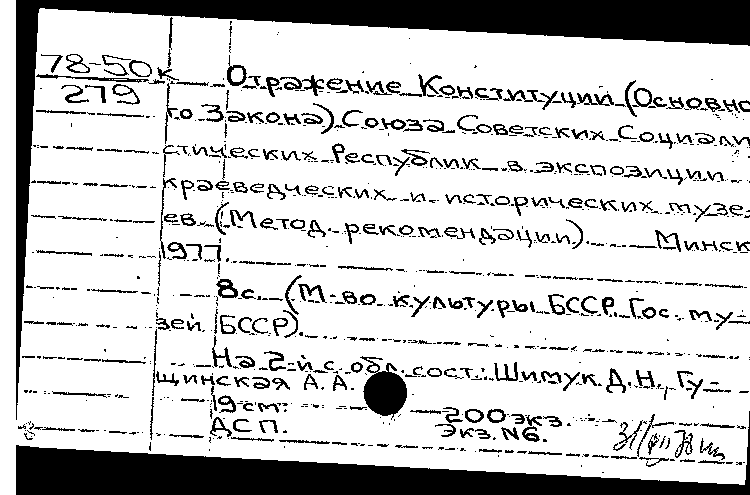 78-50к Отражение Конституции (Основно
279
го Закона) Союза Советских Социали
стических Республик в экспозиции
краеведческих и исторических музе
ев. (Метод. рекомендации). Минск
1977.
8с. (М-во культуры БССР. Гос. му-
зей БССР).
На 2-й с. обл. сост.: Шимук Д.Н., Гу-
щинская А.А.
19см. 200экз.
ДСП. Экз. N6.